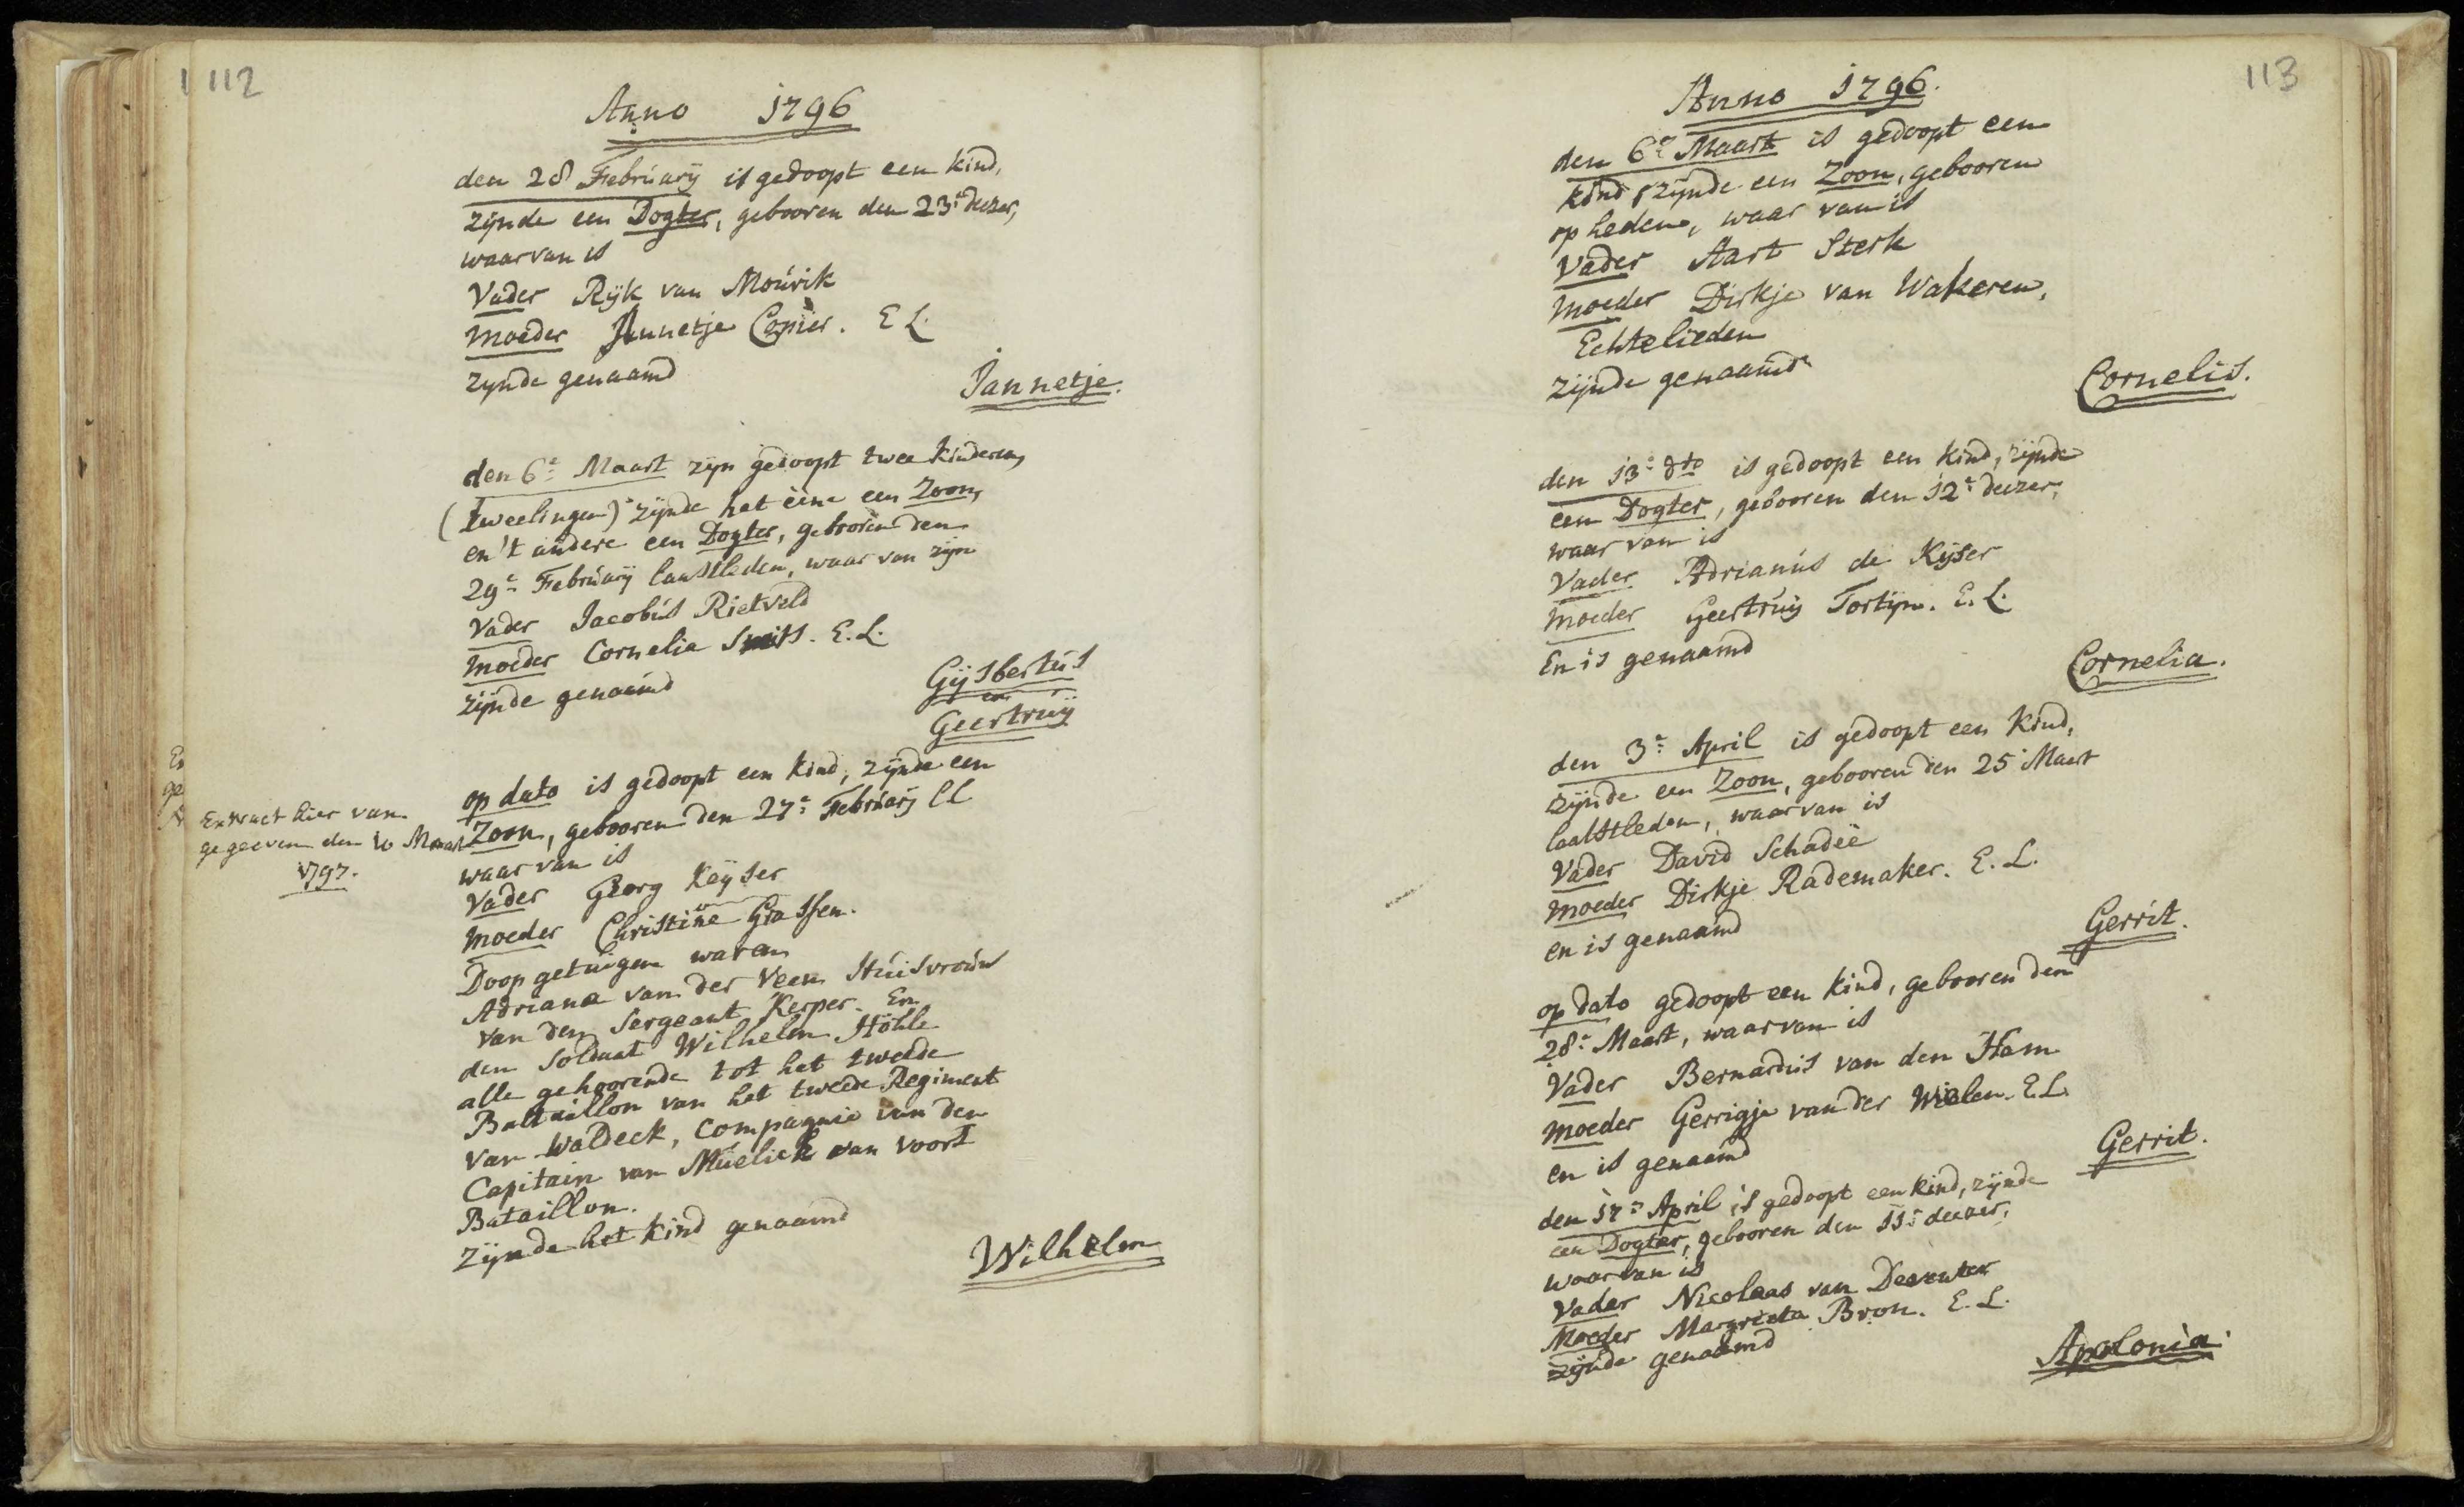 112
Anno 1796
den 28 Februarij is gedoopt een kind,
zijnde een Dogter, gebooren den 23e deezer,
waarvan is
Vader Rijk van Mourik
Moeder Annetje Copier. E L.
zynde genaamd
Jannetje.
den 6e Maart zijn gedoopt twee kinderen,
(Tweelingen) zijnde het eene een Zoon,
en 't andere een Dogter, gebooren den
29e Februarij laastleden, waar van zijn
Vader Jacobus Rietveld
Moeder Cornelia Smits. E. L.
zijnde genaamd
Gijsbertus
en
Geertruij
op dato is gedoopt een kind, zijnde een
Extract hier van
gegeeven den 10 Maart
1797.
Zoon, gebooren den 27e Februarij LL
waar van is
Vader Georg Keijser
Moeder Christine Grassen.
Doop getuigen waren
Adriana van der Veen Huisvrouw
van den Sergeant Kerper. En
den Soldaat Wilhelm Höhle
alle gehoorende tot het tweede
Battaillon van het tweede Regiment
van Waldeck, Compagnie van den
Capitain van Muelich van voorst
Bataillon.
Zijnde het kind genaamd
Wilhelm
113
Anno 1796.
den 6e Maart is gedoopt een
kind, zijnde een Zoon, gebooren
op heden, waar van is
Vader Aart Sterk
Moeder Dirkje van Wakeren,
Echtelieden
zijnde genaamd
Cornelis.
den 13e dto is gedoopt een kind, zijnde
een Dogter, gebooren den 12e deezer,
waar van is
Vader Adrianus de Kijser
Moeder Geertruij Tortijn. E. L.
En is genaamd
Cornelia.
den 3e April is gedoopt een kind,
zijnde een Zoon, gebooren den 25 Maart
laatstleden, waarvan is
Vader David Schadeé
Moeder Dirkje Rademaker. E. L.
en is genaamd
Gerrit.
op dato gedoopt een kind, gebooren den
28e Maart, waarvan is
Vader Bernardus van den Ham
Moeder Gerrigje van der Wielen. E L.
en is genaamd
Gerrit.
den 17e April is gedoopt een kind, zijnde
een Dogter, gebooren den 11e deezer,
waarvan is
Vader Nicolaas van Deventer
Moeder Margrieta Bron. E. L.
zijnde genaamd
Apolonia.